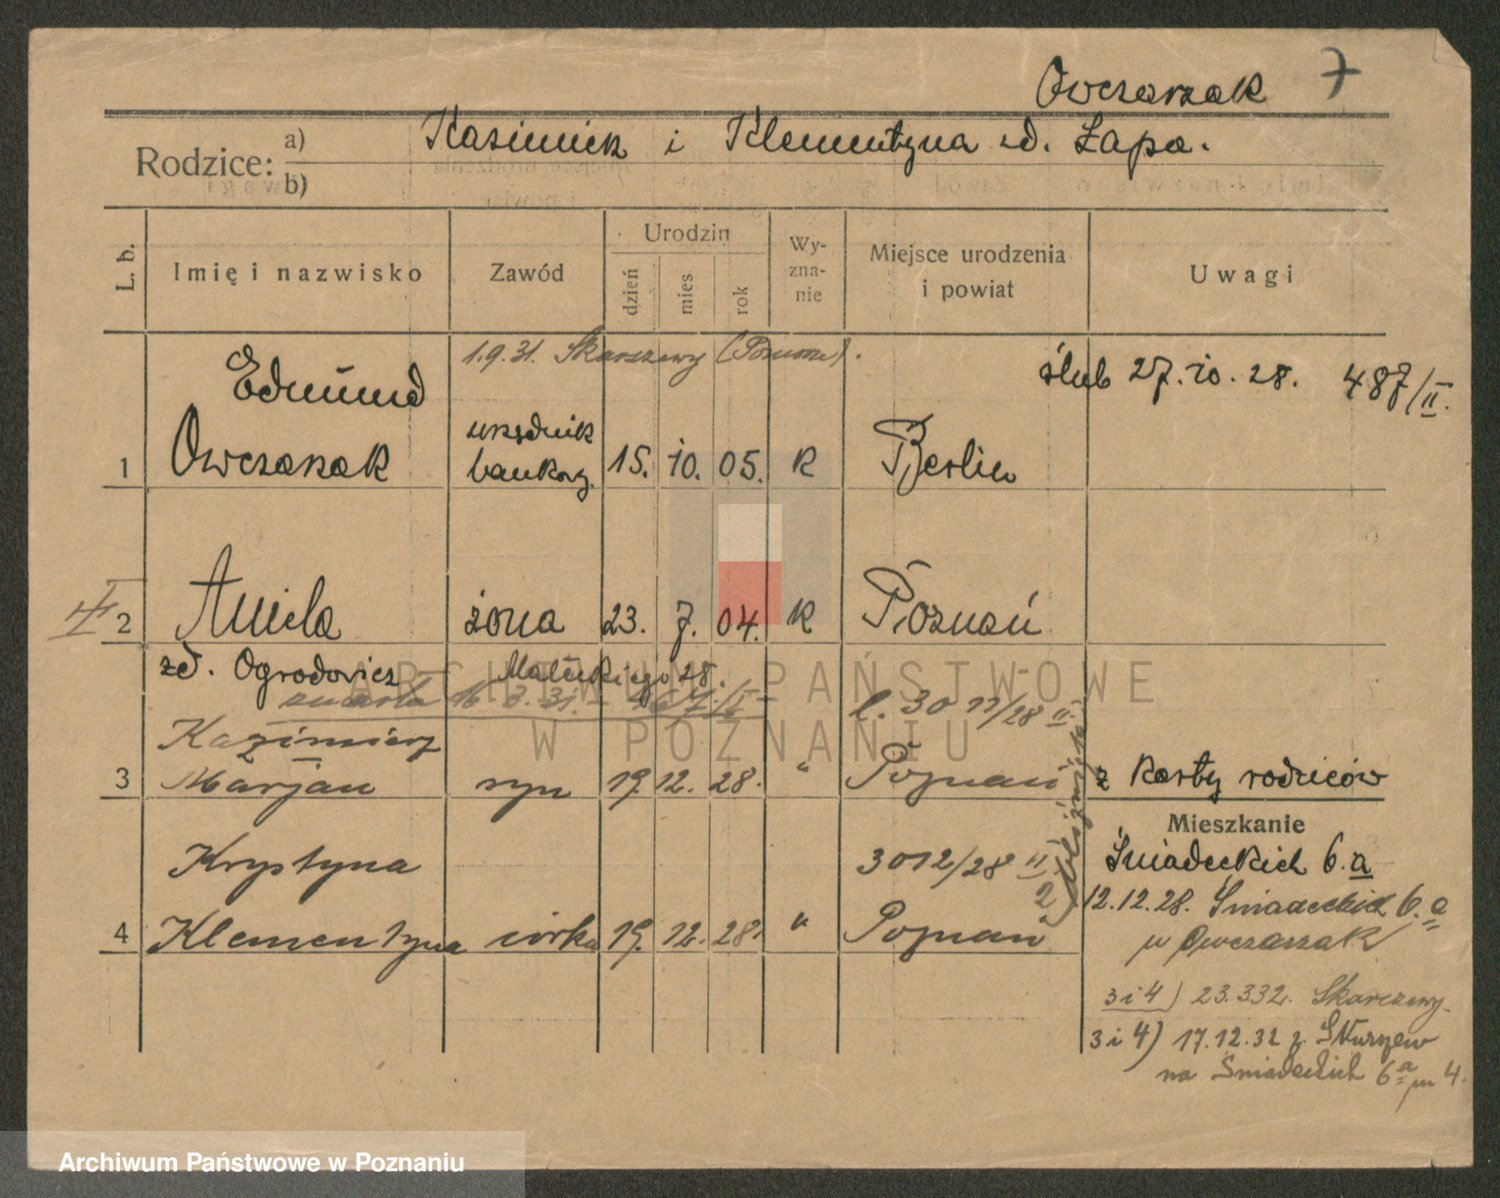 Owczarzak 7
Rodzice: a) b)
Kazimierz i Klementyna zd. Łapa.
L. b.
Imię i nazwisko
Zawód
Urodzin
dzień
mies
rok
Wy-
zna-
nie
Miejsce urodzenia
i powiat
Uwagi
1.9.31. Skarszewy (Pomorze).
ślub 27.10.28. 487/II.
1 Edmund
Owczarzak
urzędnik
bankowy.
15. 10. 05. R Berlin
II 2 Aniela żona 23. 7. 04. R Poznań
zd. Ogrodowicz Małeckiego 28.
zmarła 16.3.31.
l. 3011/28 II.
3 Kazimierz
Marjan syn 19. 12. 28. " Poznań
z karty rodziców
bliźnięta
Mieszkanie
Śniadeckich 6.a
4 Krystyna
Klementyna córka 19. 12. 28. " Poznań
3012/28 II
12.12.28. Śniadeckich 6.a
p Owczarzak
3 i 4) 23.3.32. Skarszewy.
3 i 4) 17.12.32 z Skurzew
na Śniadeckich 6a m 4.
ARCHIWUM PAŃSTWOWE
W POZNANIU
Archiwum Państwowe w Poznaniu